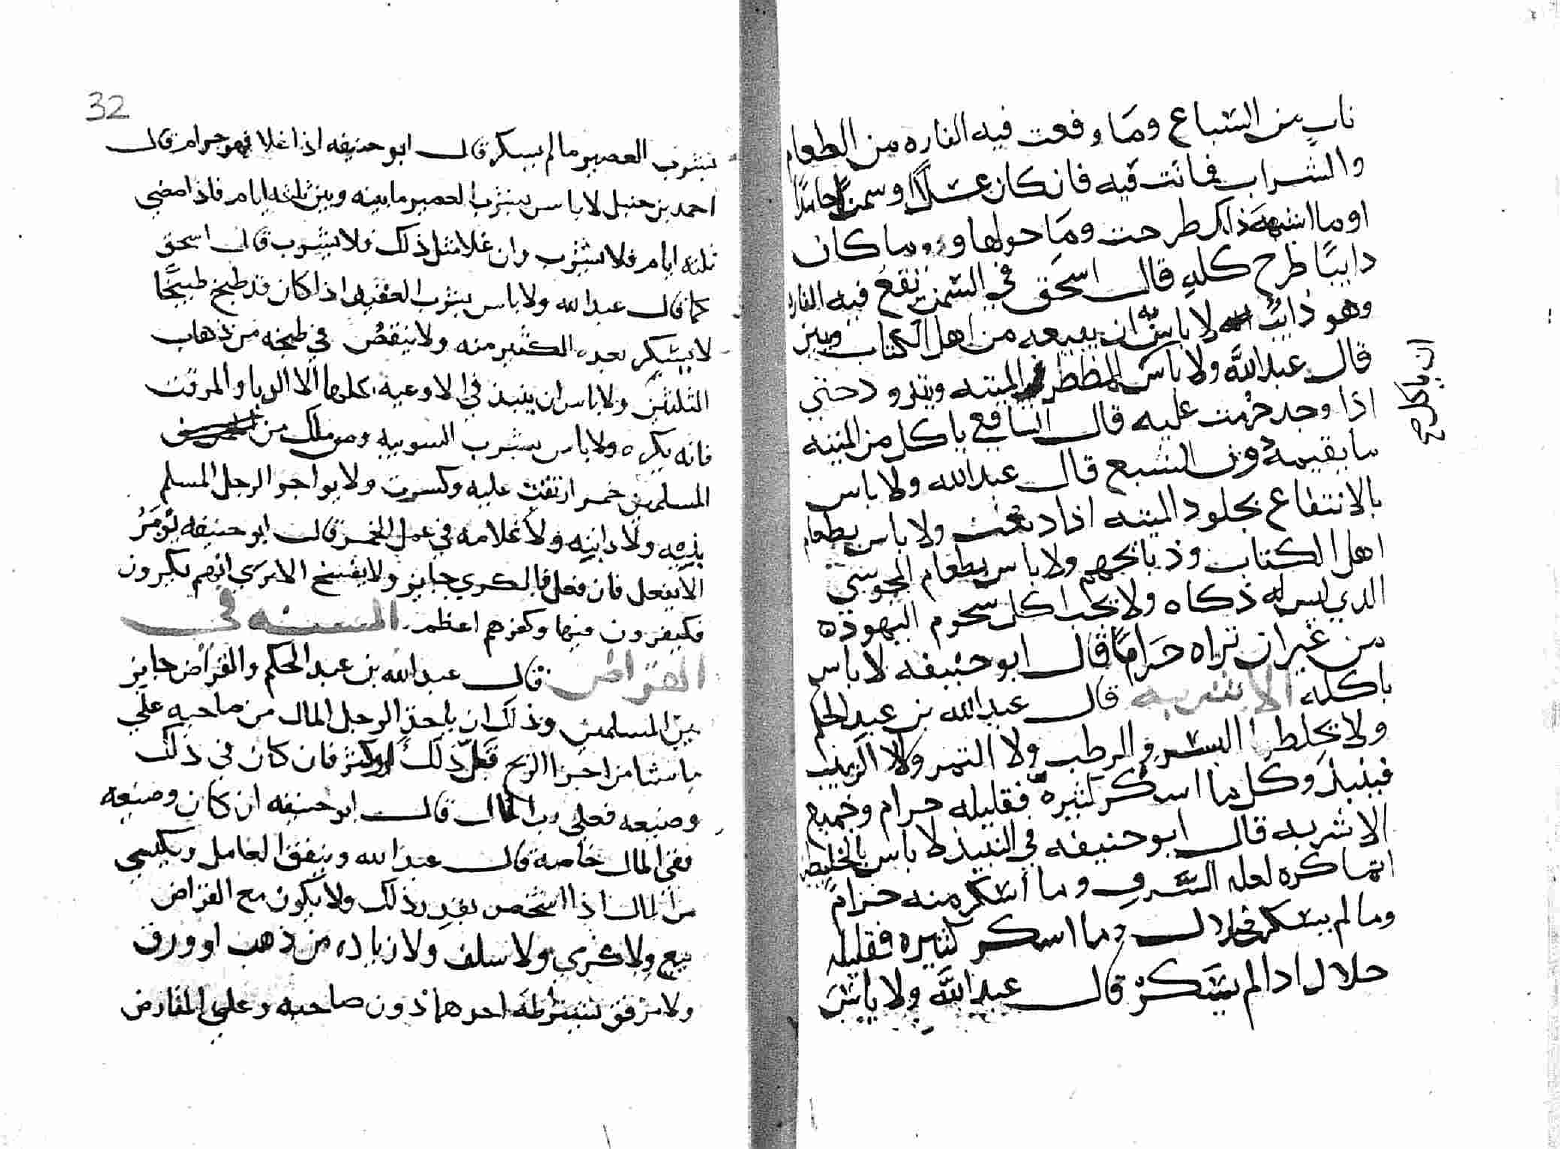 ناب من السباع وما وقعت فيه الفاره من الطعام
والشراب فماتت فيه فان كان عسلا او سمنا جامدا
او ما اشبه ذلك طرحت وما حولها وما كان
دايبا طرح كله قال اسحق في السمن تقع فيه الفاره
وهو ذايب لا باس ان يبيعه من اهل الكتاب ويبين
قال عبد الله ولا باس للمضطر الميته ويتزود حتى
اذا وجد حرمت عليه قال الشافعي ياكل من الميته
ما يقيمه دون الشبع قال عبد الله ولا باس
بالانتفاع بجلود الميته اذا دبغت ولا باس بطعام
اهل الكتاب وذبايحهم ولا باس بطعام المجوسي
الذي ليس له ذكاه ولا يجب اكل شحوم اليهود
من غير ان تراه حراما قال ابو حنيفه لا باس
باكله الاشربه قال عبد الله بن عبد الحكم
ولا يخلط البسر والرطب ولا التمر ولا الزبيب
فينبذ وكل ما اسكر كثيره فقليله حرام وجميع
الاشربه قال ابو حنيفه في النبيذ لا باس بالخليطين
انما كره لعله السرف وما اسكر منه حرام
وما لم يسكر فحلال وما اسكر كثيره فقليله
حلال اذا لم يسكر قال عبد الله ولا باس
32
بشرب العصير ما لم يسكر قال ابو حنيفه اذا غلا فهو حرام قال
احمد بن حنبل لا باس بشرب العصير ما بينه وبين ثلثه ايام فاذا مضى
ثلثه ايام فلا يشرب وان غلا قبل ذلك فلا يشرب قال اسحق
كما قال عبد الله ولا باس بشرب العقيد اذا كان قد طبخ طبيخا
لا يسكر بعده الكثير منه ولا ينقص في طبخه من ذهاب
الثلثين ولا باس ان ينبذ في الاوعيه كلها الا الدبا والمزفت
فانه يكره ولا باس بشرب السوبيه ومن ملك من
المسلمين خمر ارتفت عليه وكسرت ولا يواجر الرجل المسلم
ولا دابته ولا غلامه في عمل الخمر قال ابو حنيفه يومر
الا يفعل فان فعل فالكري جايز ولا يفسخ الا ترى انهم يكرون
فيكفرون فيها وكفرهم اعظم. السنه في
القراض قال عبد الله بن عبد الحكم والقراض جايز
بين المسلمين وذلك ان ياخذ الرجل المال من صاحبه على
ما شا من اجزا الربح قل ذلك او كثر فان كان في ذلك
وضيعه فعلى رب المال قال ابو حنيفه ان كان وضيعه
ففي المال خاصه قال عبد الله وينفق العامل ويكتسي
من المال اذا اشخص بقدر ذلك ولا يكون مع القراض
بيع ولا كري ولا سلف ولا زياده من ذهب او ورق
ولا مرفق يشترطه احدهما دون صاحبه وعلى المقارض